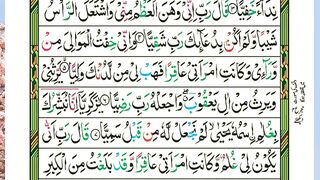 نِدَآءً خَفِيًّا ۝ قَالَ رَبِّ اِنِّىْ وَهَنَ الْعَظْمُ مِنِّىْ وَاشْتَعَلَ الرَّاْسُ
شَيْبًا وَّلَمْ اَكُنْۢ بِدُعَآئِكَ رَبِّ شَقِيًّا ۝ وَاِنِّىْ خِفْتُ الْمَوَالِىَ مِنْ
وَّرَآءِىْ وَكَانَتِ امْرَاَتِىْ عَاقِرًا فَهَبْ لِىْ مِنْ لَّدُنْكَ وَلِيًّا ۝ يَّرِثُنِىْ
وَيَرِثُ مِنْ اٰلِ يَعْقُوْبَ وَاجْعَلْهُ رَبِّ رَضِيًّا ۝ يٰزَكَرِيَّآ اِنَّا نُبَشِّرُكَ
بِغُلٰمِ ِۨاسْمُهٗ يَحْيٰى لَمْ نَجْعَلْ لَّهٗ مِنْ قَبْلُ سَمِيًّا ۝ قَالَ رَبِّ اَنّٰى
يَكُوْنُ لِىْ غُلٰمٌ وَّكَانَتِ امْرَاَتِىْ عَاقِرًا وَّقَدْ بَلَغْتُ مِنَ الْكِبَرِ